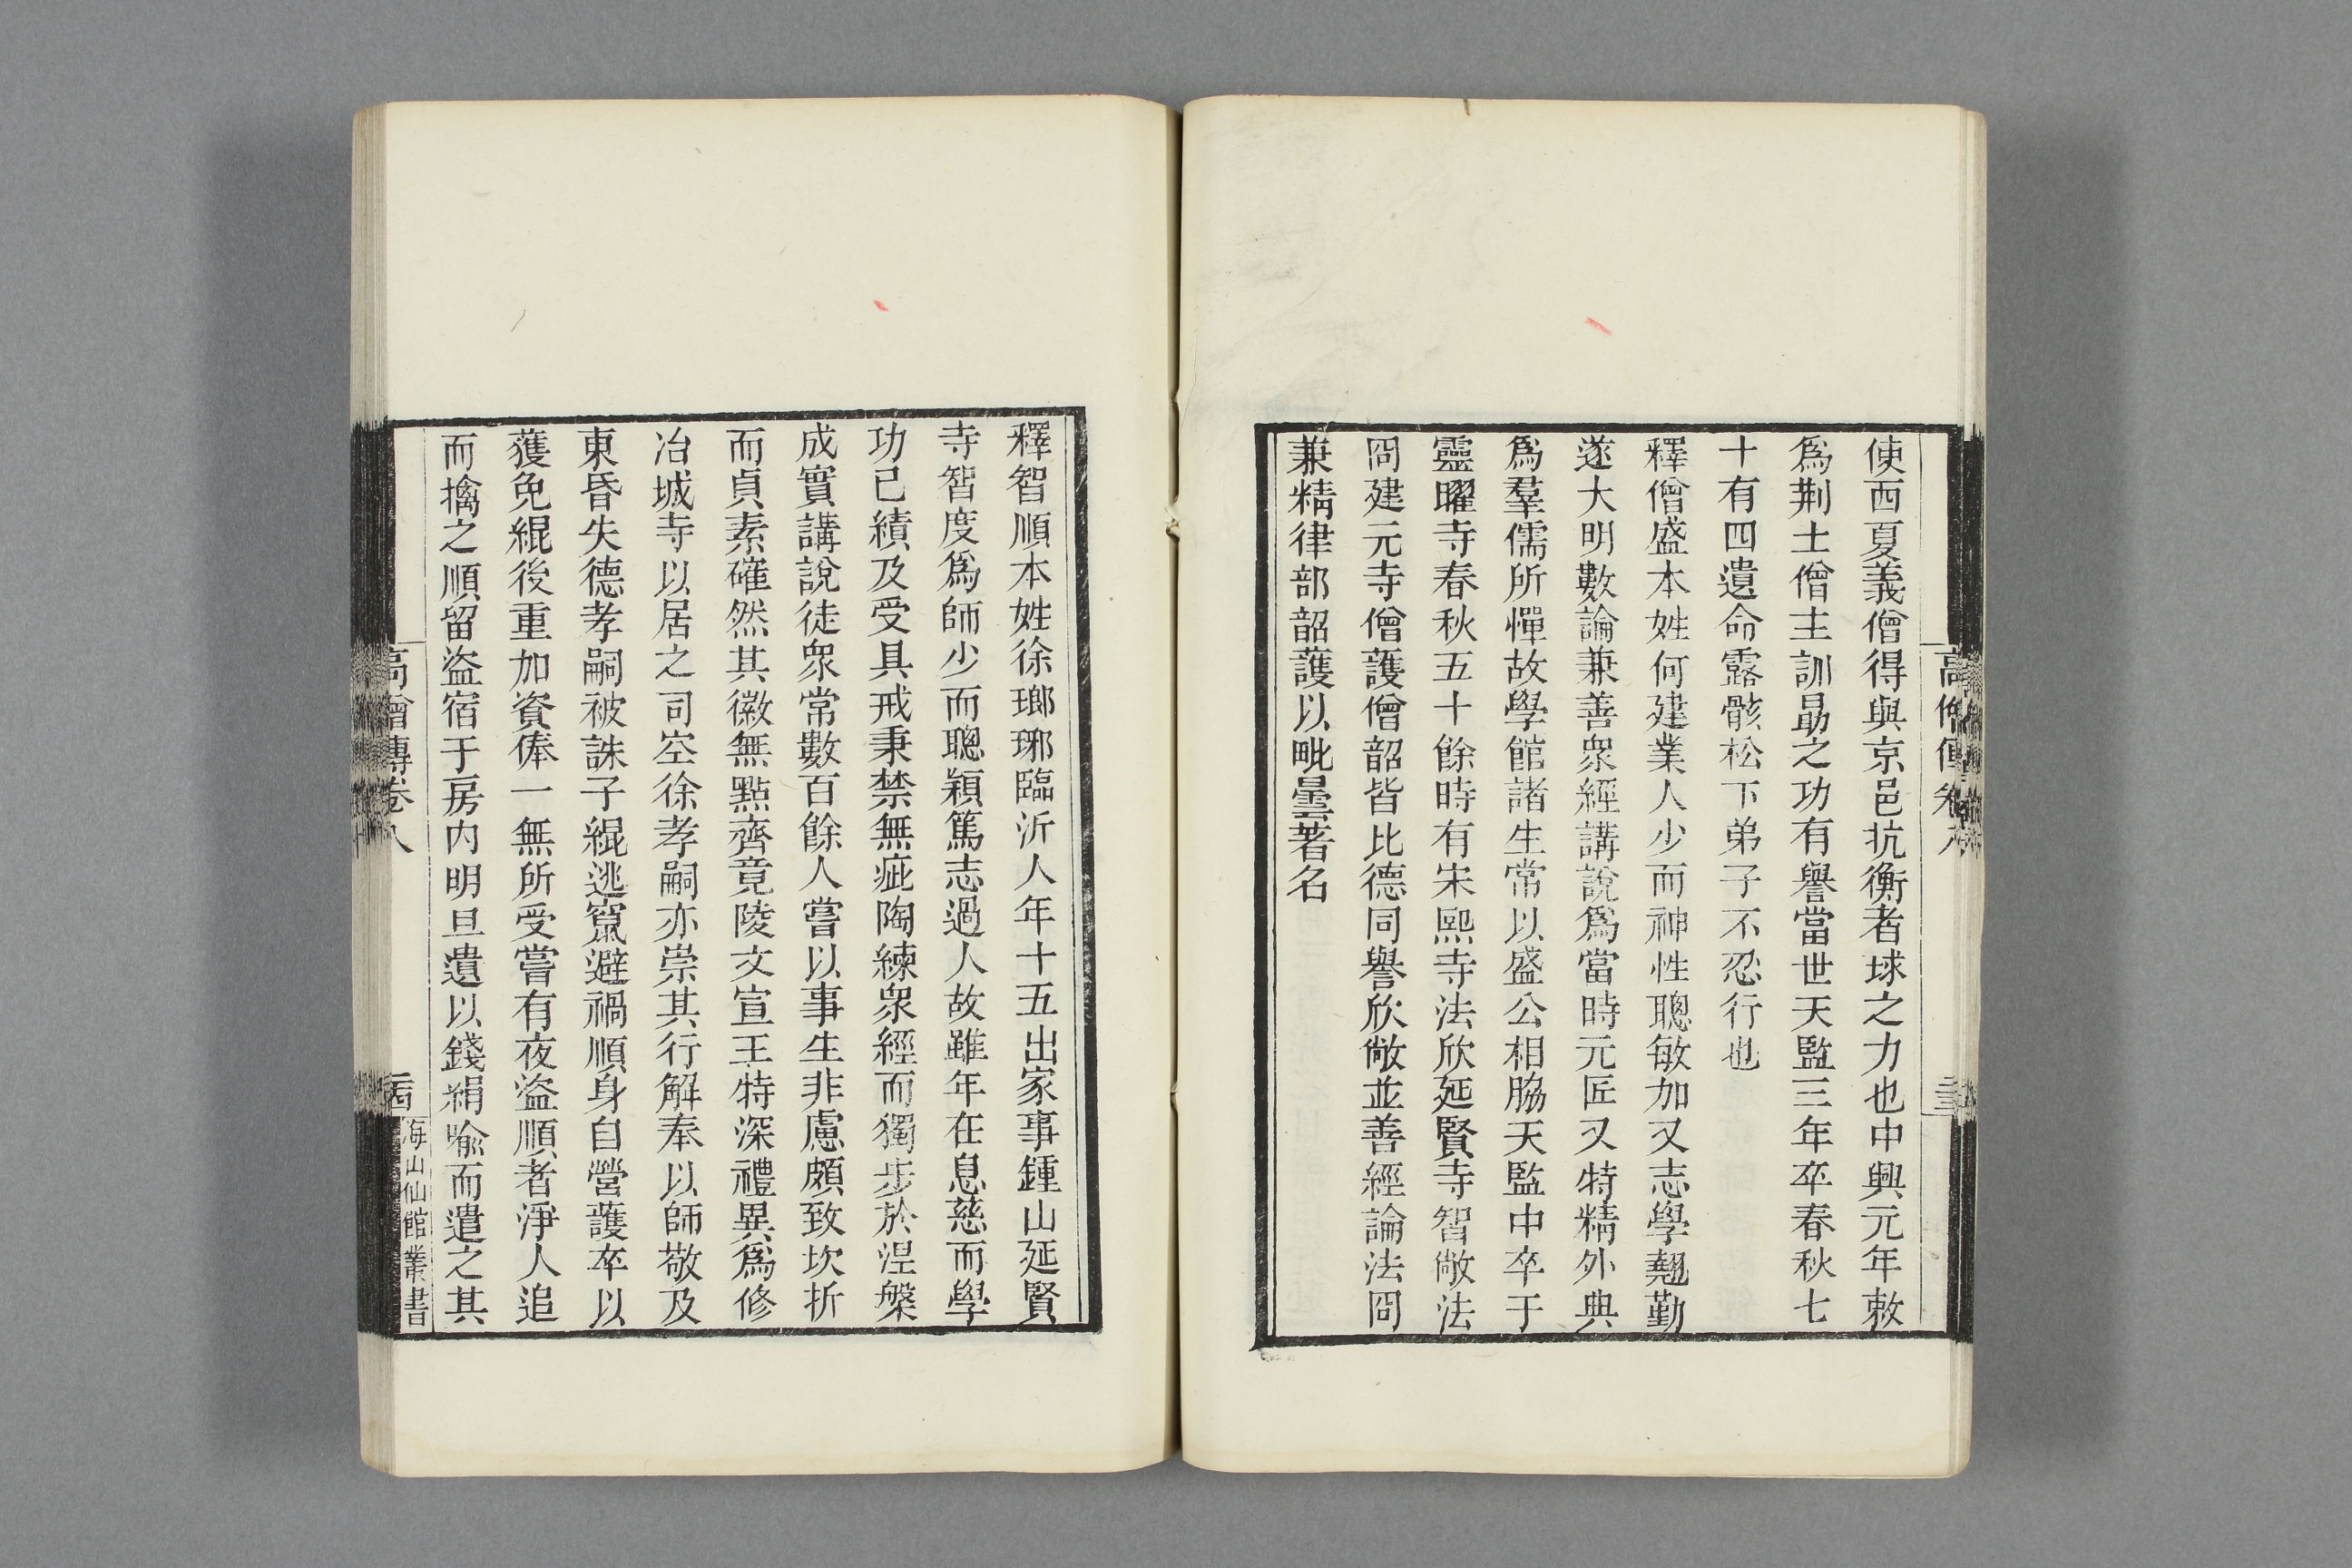 使西夏義僧得與京邑抗衡者球之力也中興元年敕
爲荆土僧主訓勗之功有譽當世天監三年卒春秋七
十有四遺命露骸松下弟子不忍行也
釋僧盛本姓何建業人少而神性聰敏加又志學翹勤
遂大明數論兼善衆經講說爲當時元匠又特精外典
爲羣儒所憚故學館諸生常以盛公相脇天監中卒于
靈曜寺春秋五十餘時有宋熙寺法欣延賢寺智敞法
冏建元寺僧護僧韶皆比德同譽欣敞並善經論法冏
兼精律部韶護以毗曇著名
釋智順本姓徐瑯琊臨沂人年十五出家事鍾山延賢
寺智度爲師少而聰穎篤志過人故雖年在息慈而學
功已績及受具戒秉禁無疵陶練衆經而獨步於涅槃
成實講說徒衆常數百餘人嘗以事生非慮頗致坎折
而貞素確然其徽無點齊竟陵文宣王特深禮異爲修
冶城寺以居之司空徐孝嗣亦崇其行解奉以師敬及
東昏失德孝嗣被誅子緄逃竄避禍順身自營護卒以
獲免緄後重加資俸一無所受嘗有夜盜順者淨人追
而擒之順留盜宿于房内明旦遺以錢絹喻而遣之其
高僧傳卷八
海山仙館叢書